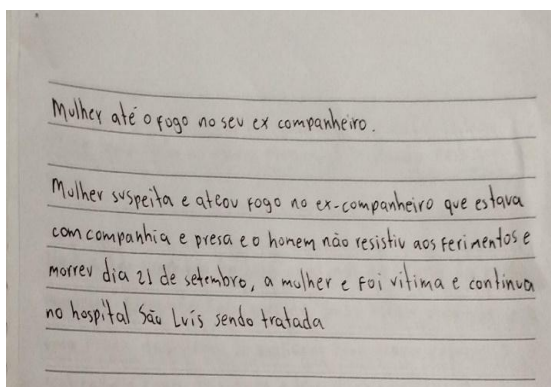 Mulher até o fogo no seu ex companheiro.
Mulher suspeita e ateou fogo no ex-companheiro que estava
com companhia e presa e o homem não resistiu aos ferimentos e
morrev dia 21 de setembro, a mulher e foi vítima e continua
no hospital São Luís sendo tratada